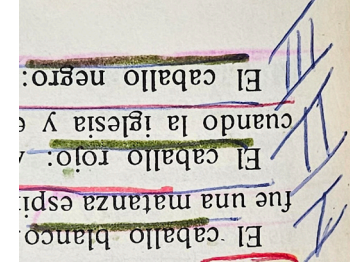 I El caballo blanco
fue una matanza espi
II El caballo rojo:
cuando la iglesia y
III El caballo negro: